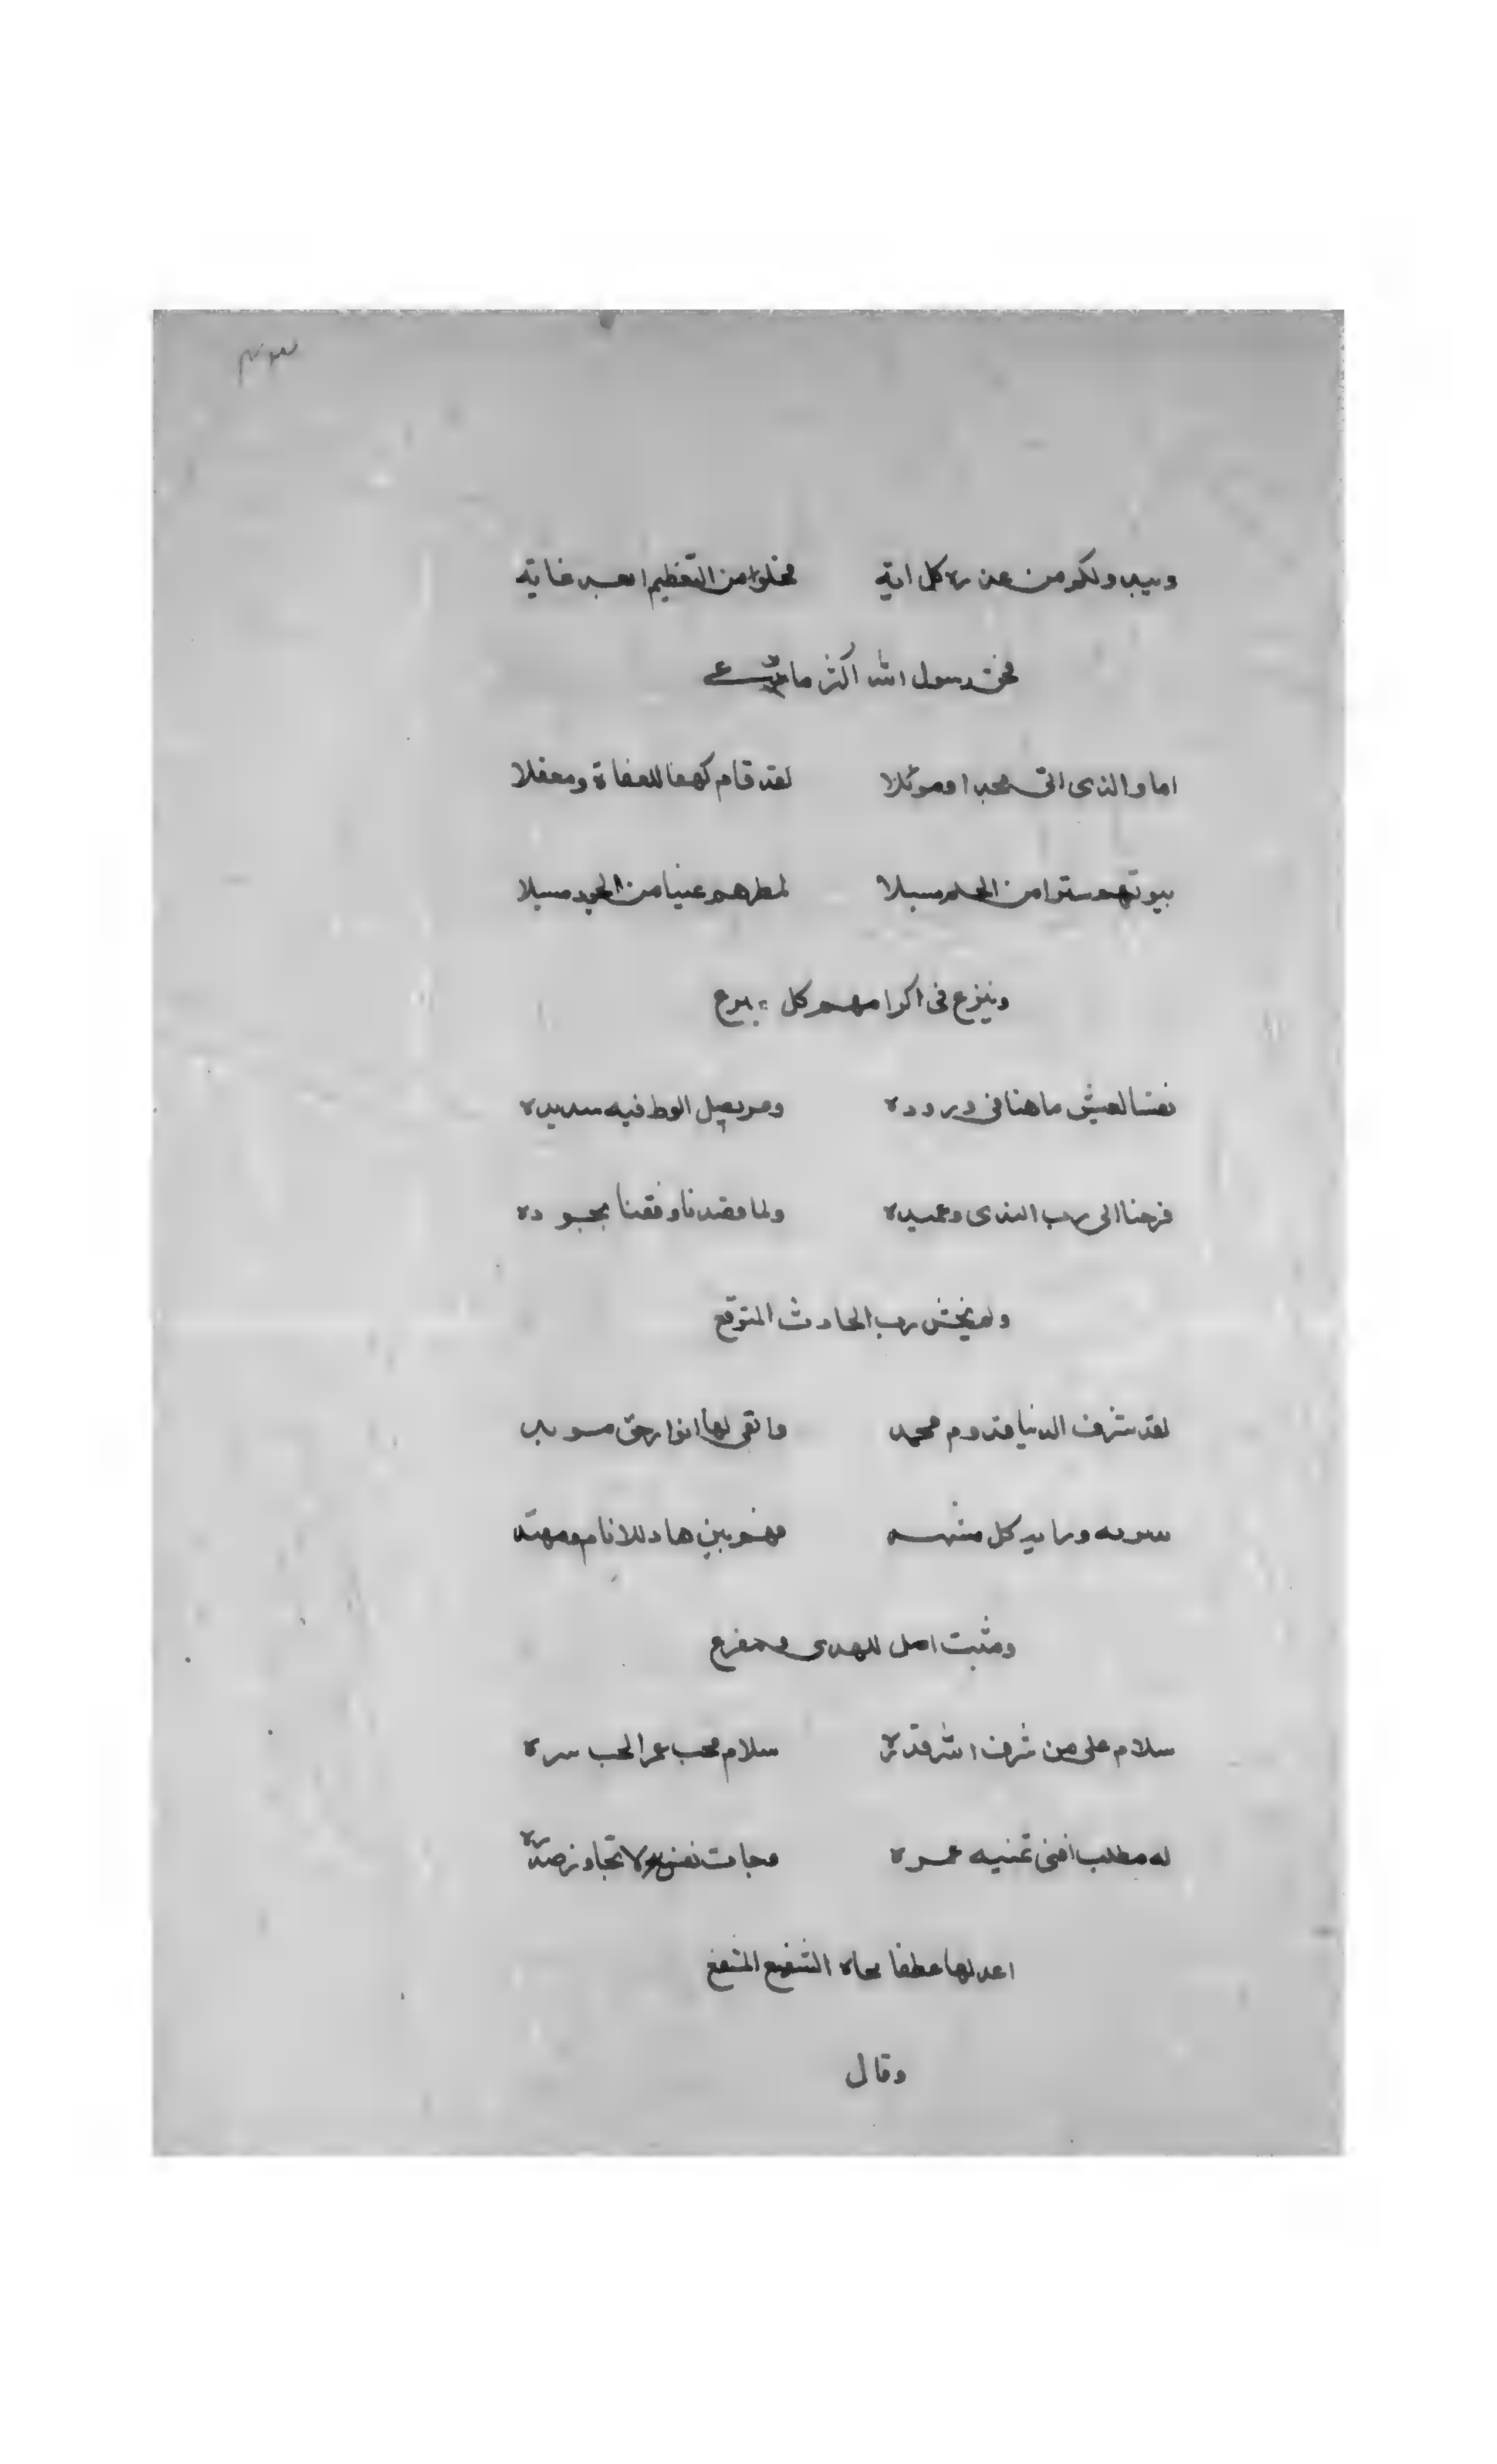 ويبدو لكم من عزه كل اية فخلوا من التعظيم ابعد غاية
فحق رسول الله اكثر ما رعي
اما والذى اتى مجدا وموئلا لقد قام كهفا للعفاة ومعقلا
بيوتهم سترا من الحلم مسبلا لمطرهم غيثا من الجود مسبلا
وينزع فى اكرامهم كل منزع
نفسا لعيش ما هنا فى وروده ومر يصل الوط فيه
فرحنا الى رب الندى وعميده ولما قصدنا وفقنا بجوده
ولم نخش رب الحادث المتوقع
لقد شرف الدنيا قدوم محمد وابقى لها انوار حق مويد
كل مشهد فهم بين هاد للانام ومهتد
ومثبت اصل للهدى ومفرع
سلام على من شرف الله قدره سلام محب عمر الحب سره
له مطلب افنى تمنيه عمره وحاجات نفس لا تجاوز صدره
اعد لها عطفا بجاه الشفيع المشفع
وقال